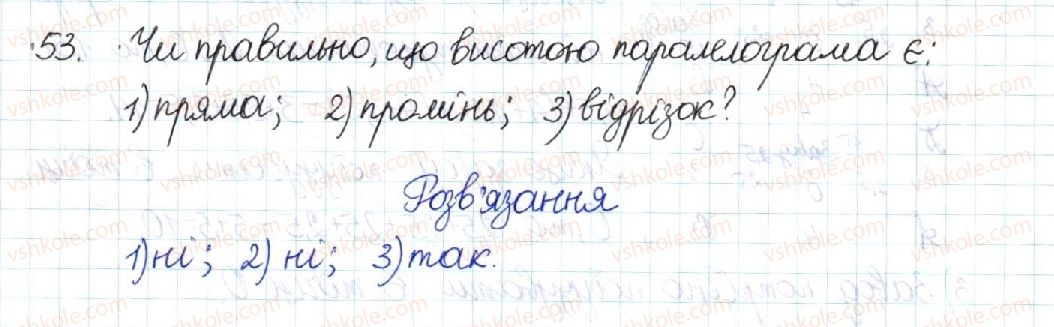 53. Чи правильно, що висотою паралелограма є:
1) пряма; 2) промінь; 3) відрізок?
Розв'язання
1) ні; 2) ні; 3) так.